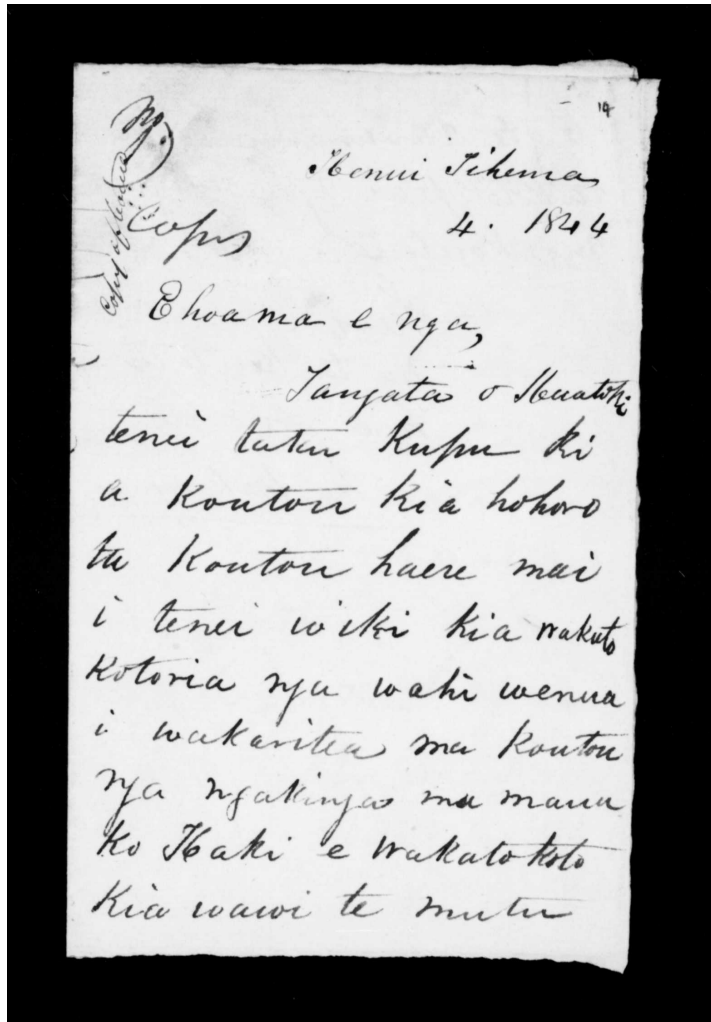 19
No.
Copy of letter
Copy
Henui Tihema
4. 1844
Ehoama e nga,
Tangata o Huatoki
tenei tatu Kupu ki
a Koutou Kia hohoro
tu Koutou haere mai
i tenei wiki kia wakato
Kotoria nga wahi wenua
i wakaritea ma Koutou
nga ngakinga ma maua
Ko Haki e wakatokoto
Kia wawi te mutu